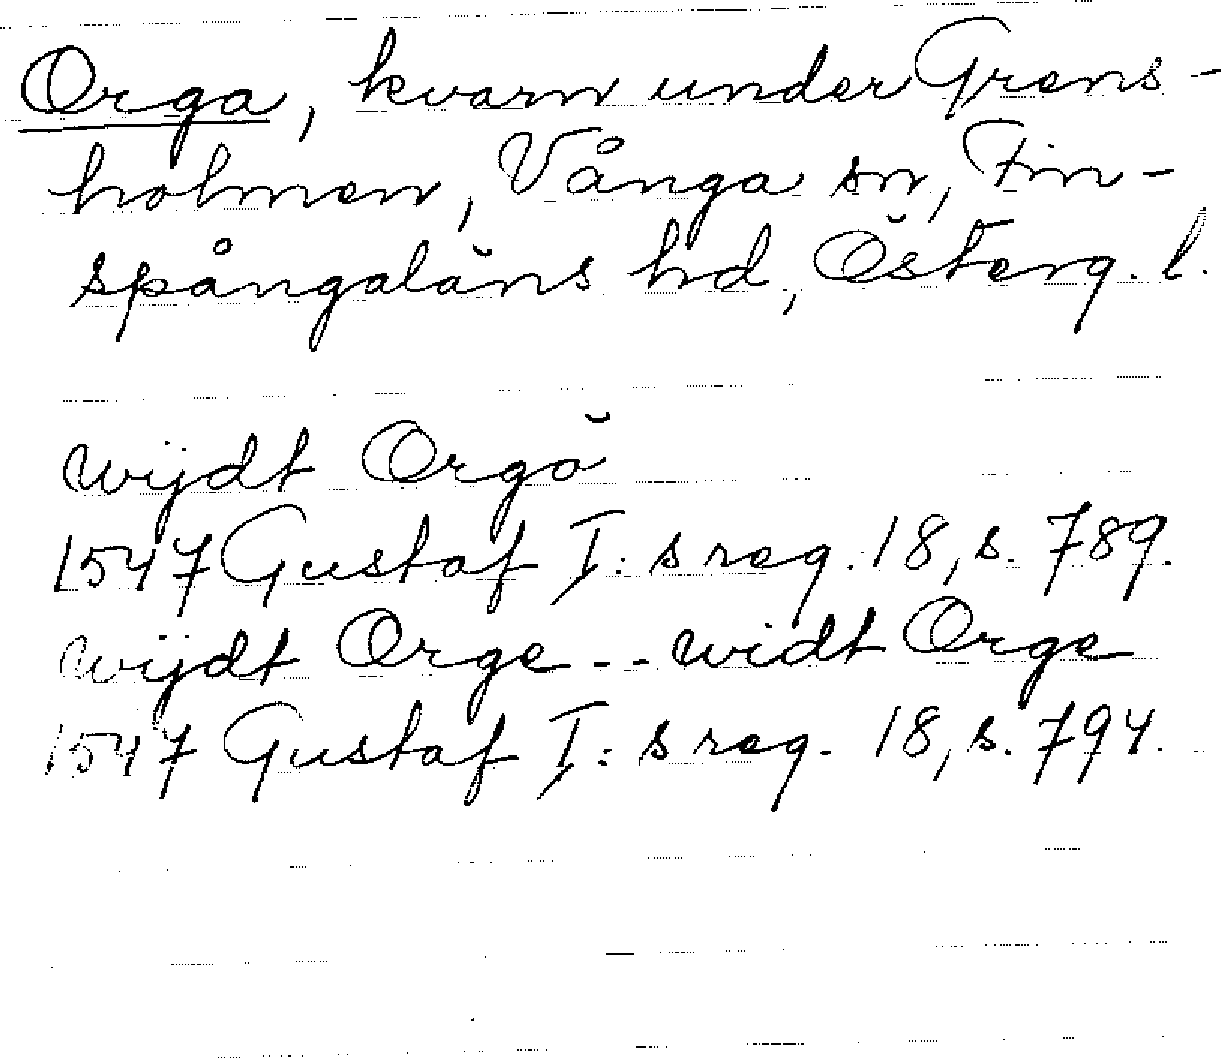 Orga, kvarn under Grens-
holmen, Vånga sn, Fin-
spångaläns hd, Österg. l.
wijdt Orgö
1547 Gustaf I:s reg. 18, s. 789.
wijdt Orge - - widt Orge
1547 Gustaf I:s reg. 18, s. 794.